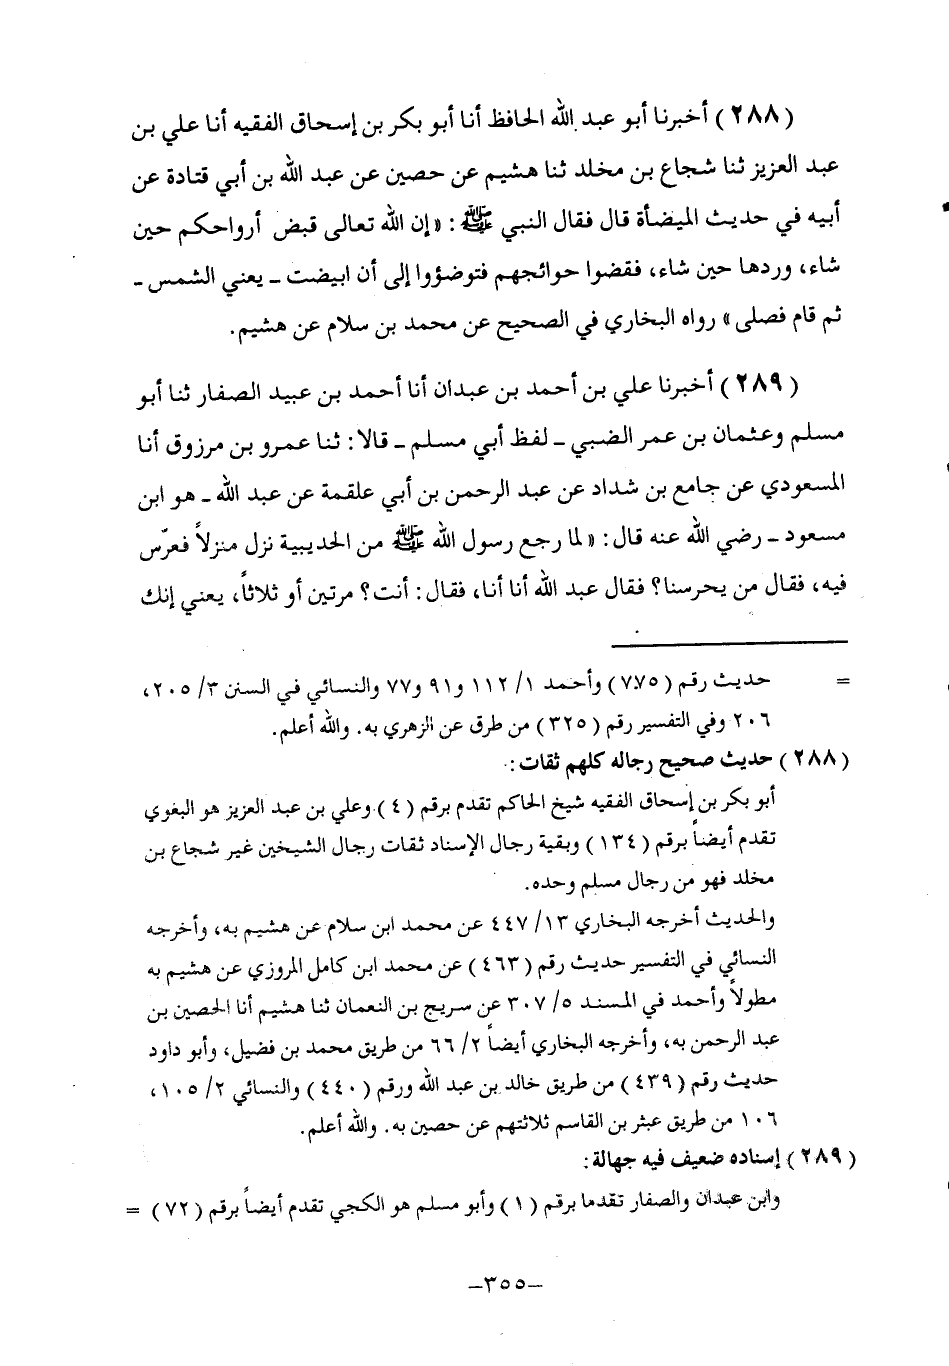 ( ٢٨٨ ) أخبرنا أبو عبد الله الحافظ أنا أبو بكر بن إسحاق الفقيه أنا علي بن
عبد العزيز ثنا شجاع بن مخلد ثنا هشيم عن حصين عن عبد الله بن أبي قتادة عن
أبيه في حديث الميضأة قال فقال النبي ﷺ : « إن الله تعالى قبض أرواحكم حين
شاء، وردها حين شاء، فقضوا حوائجهم فتوضؤوا إلى أن ابيضت ـ يعني الشمس ـ
ثم قام فصلى » رواه البخاري في الصحيح عن محمد بن سلام عن هشيم.
( ٢٨٩ ) أخبرنا علي بن أحمد بن عبدان أنا أحمد بن عبيد الصفار ثنا أبو
مسلم وعثمان بن عمر الضبي ـ لفظ أبي مسلم ـ قالا : ثنا عمرو بن مرزوق أنا
المسعودي عن جامع بن شداد عن عبد الرحمن بن أبي علقمة عن عبد الله ـ هو ابن
مسعود ـ رضي الله عنه قال : « لما رجع رسول الله ﷺ من الحديبية نزل منزلاً فعرّس
فيه، فقال من يحرسنا؟ فقال عبد الله أنا أنا، فقال : أنت؟ مرتين أو ثلاثاً، يعني إنك
= حديث رقم ( ٧٧٥ ) وأحمد ١/ ١١٢ و٩١ و٧٧ والنسائي في السنن ٣/ ٢٠٥،
٢٠٦ وفي التفسير رقم ( ٣٢٥ ) من طرق عن الزهري به. والله أعلم.
( ٢٨٨ ) حديث صحيح رجاله كلهم ثقات :
أبو بكر بن إسحاق الفقيه شيخ الحاكم تقدم برقم ( ٤ ) وعلي بن عبد العزيز هو البغوي
تقدم أيضاً برقم ( ١٣٤ ) وبقية رجال الإسناد ثقات رجال الشيخين غير شجاع بن
مخلد فهو من رجال مسلم وحده.
والحديث أخرجه البخاري ١٣/ ٤٤٧ عن محمد ابن سلام عن هشيم به، وأخرجه
النسائي في التفسير حديث رقم ( ٤٦٣ ) عن محمد ابن كامل المروزي عن هشيم به
مطولاً وأحمد في المسند ٥/ ٣٠٧ عن سريج بن النعمان ثنا هشيم أنا الحصين بن
عبد الرحمن به، وأخرجه البخاري أيضاً ٢/ ٦٦ من طريق محمد بن فضيل، وأبو داود
حديث رقم ( ٤٣٩ ) من طريق خالد بن عبد الله ورقم ( ٤٤٠ ) والنسائي ٢/ ١٠٥،
١٠٦ من طريق عبثر بن القاسم ثلاثتهم عن حصين به. والله أعلم.
( ٢٨٩ ) إسناده ضعيف فيه جهالة :
وابن عبدان والصفار تقدما برقم ( ١ ) وأبو مسلم هو الكجي تقدم أيضاً برقم ( ٧٢ ) =
ـ ٣٥٥ ـ